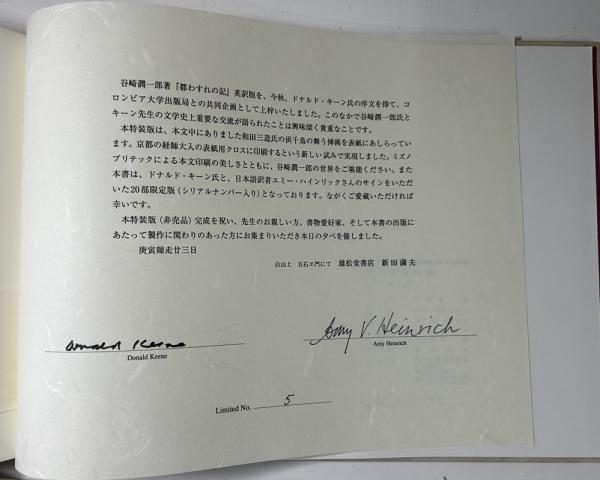 谷崎潤一郎著『都わすれの記』英訳版を、今秋、ドナルド・キーン氏の序文を得て、コ
ロンビア大学出版局との共同企画として上梓いたしました。このなかで谷崎潤一郎氏と
キーン先生の文学史上重要な交流が語られたことは興味深く貴重なことです。
本特装版は、本文中にありました和田三造氏の浜千鳥の舞う挿画を表紙にあしらってい
ます。京都の経師大入の表紙用クロスに印刷するという新しい試みで実現しました。ミズノ
プリテックによる本文印刷の美しさとともに、谷崎潤一郎の世界をご堪能ください。また
本書は、ドナルド・キーン氏と、日本語訳者エミー・ハインリックさんのサインをいただ
いた20部限定版（シリアルナンバー入り）となっております。ながくご愛蔵いただければ
幸いです。
本特装版（非売品）完成を祝い、先生のお親しい方、書物愛好家、そして本書の出版に
あたって製作に関わりのあった方にお集まりいただき本日の夕べを催しました。
庚寅師走廿三日
白山上 五右ヱ門にて 雄松堂書店 新田満夫
Donald Keene
Amy V. Heinrich
Donald Keene
Amy Heinrich
Limited No. 5